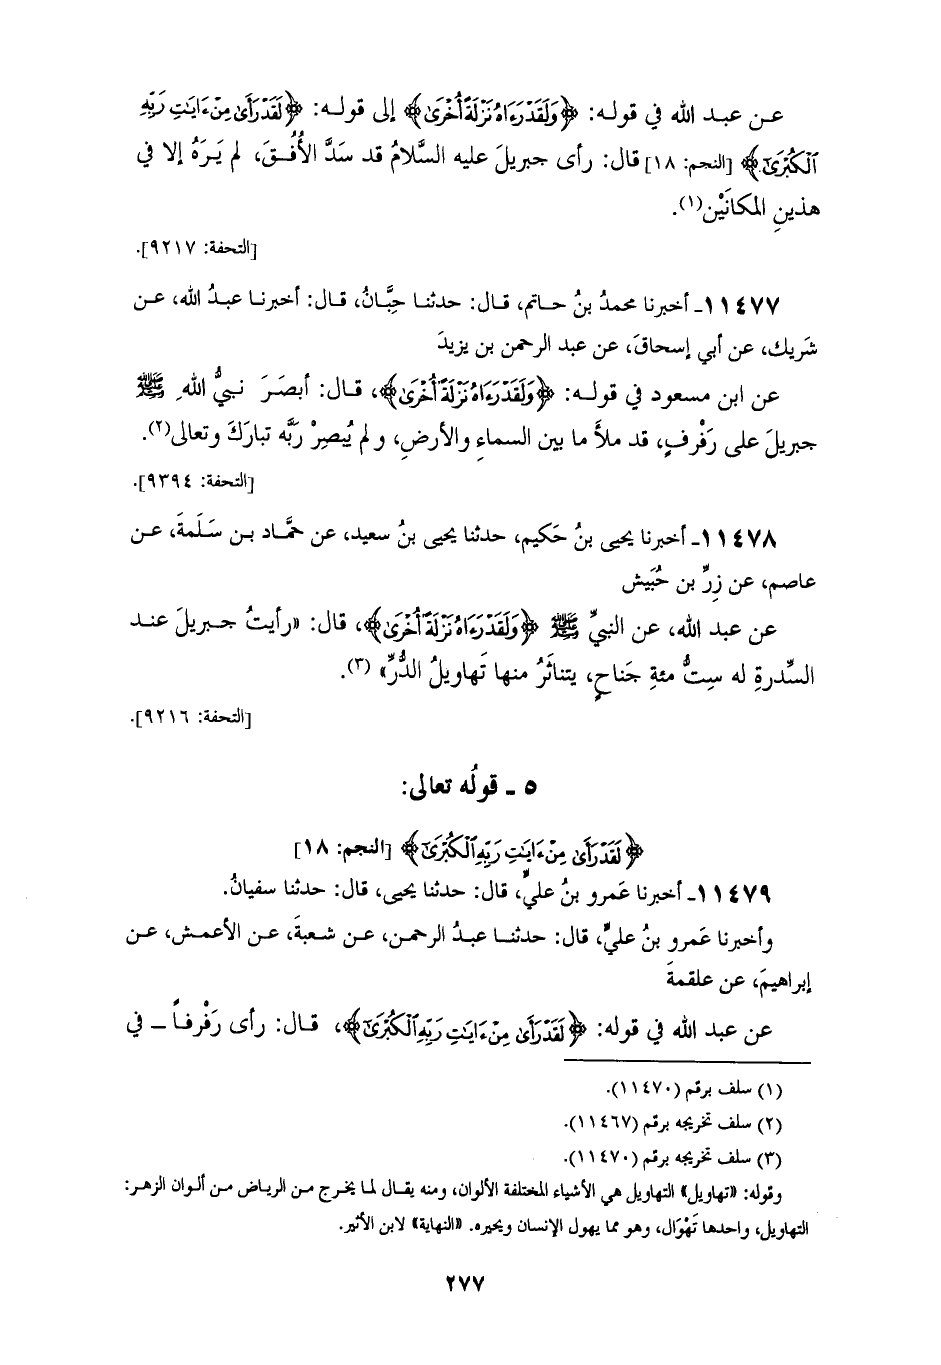 عـن عبـد الله في قولـه: ﴿وَلَقَدْ رَءَاهُ نَزْلَةً أُخْرَىٰ﴾ إلى قولـه: ﴿لَقَدْ رَأَىٰ مِنْ ءَايَٰتِ رَبِّهِ
ٱلْكُبْرَىٰٓ﴾ [النجم: ١٨] قال: رأى جبريلَ عليه السَّلامُ قد سَدَّ الأُفُـقَ، لم يَـرَهُ إلا في
هذينِ المكانَيْن(١).
[التحفة: ٩٢١٧].
١١٤٧٧ـ أخبرنا محمدُ بنُ حـاتم، قـال: حدثنـا حِبَّـانُ، قـال: أخبرنـا عبـدُ الله، عـن
شَريك، عن أبي إسحاقَ، عن عبد الرحمن بن يزيدَ
عن ابن مسعود في قولـه: ﴿وَلَقَدْ رَءَاهُ نَزْلَةً أُخْرَىٰ﴾، قـال: أبصَـرَ نبـيُّ اللهِ ﷺ
جبريلَ على رَفْرفٍ، قد ملأَ ما بين السماءِ والأرضِ، ولم يُبصِرْ رَبَّه تباركَ وتعالى(٢).
[التحفة: ٩٣٩٤].
١١٤٧٨ـ أخبرنا يحيى بنُ حَكيم، حدثنا يحيى بنُ سعيد، عن حمَّـاد بـن سَـلَمةَ، عـن
عاصم، عن زِرِّ بن حُبَيش
عن عبد الله، عن النبيِّ ﷺ ﴿وَلَقَدْ رَءَاهُ نَزْلَةً أُخْرَىٰ﴾، قال: «رأيتُ جـبريلَ عنـد
السِّدرةِ له سِتُّ مئةِ جَناحٍ، يتناثَرُ منها تَهاويلُ الدُّرِّ» (٣).
[التحفة: ٩٢١٦].
٥ ـ قولُه تعالى:
﴿لَقَدْ رَأَىٰ مِنْ ءَايَٰتِ رَبِّهِ ٱلْكُبْرَىٰٓ﴾ [النجم: ١٨]
١١٤٧٩ـ أخبرنا عَمرو بنُ عليٍّ، قال: حدثنا يحيى، قال: حدثنا سفيانُ.
وأخبرنا عَمرو بنُ عليٍّ، قال: حدثنـا عبـدُ الرحمـن، عـن شـعبةَ، عـن الأعمـش، عـن
إبراهيمَ، عن علقمةَ
عن عبد الله في قوله: ﴿لَقَدْ رَأَىٰ مِنْ ءَايَٰتِ رَبِّهِ ٱلْكُبْرَىٰٓ﴾، قـال: رأى رَفْرفـاً ـ في
(١) سلف برقم (١١٤٧٠).
(٢) سلف تخريجه برقم (١١٤٦٧).
(٣) سلف تخريجه برقم (١١٤٧٠).
وقوله: «تهاويل» التهاويل هي الأشياء المختلفة الألوان، ومنه يقال لما يخرج مـن الرياض مـن ألـوان الزهـر:
التهاويل، واحدها تَهْوَال، وهو مما يهول الإنسان ويحيره. «النهاية» لابن الأثير.
٢٧٧